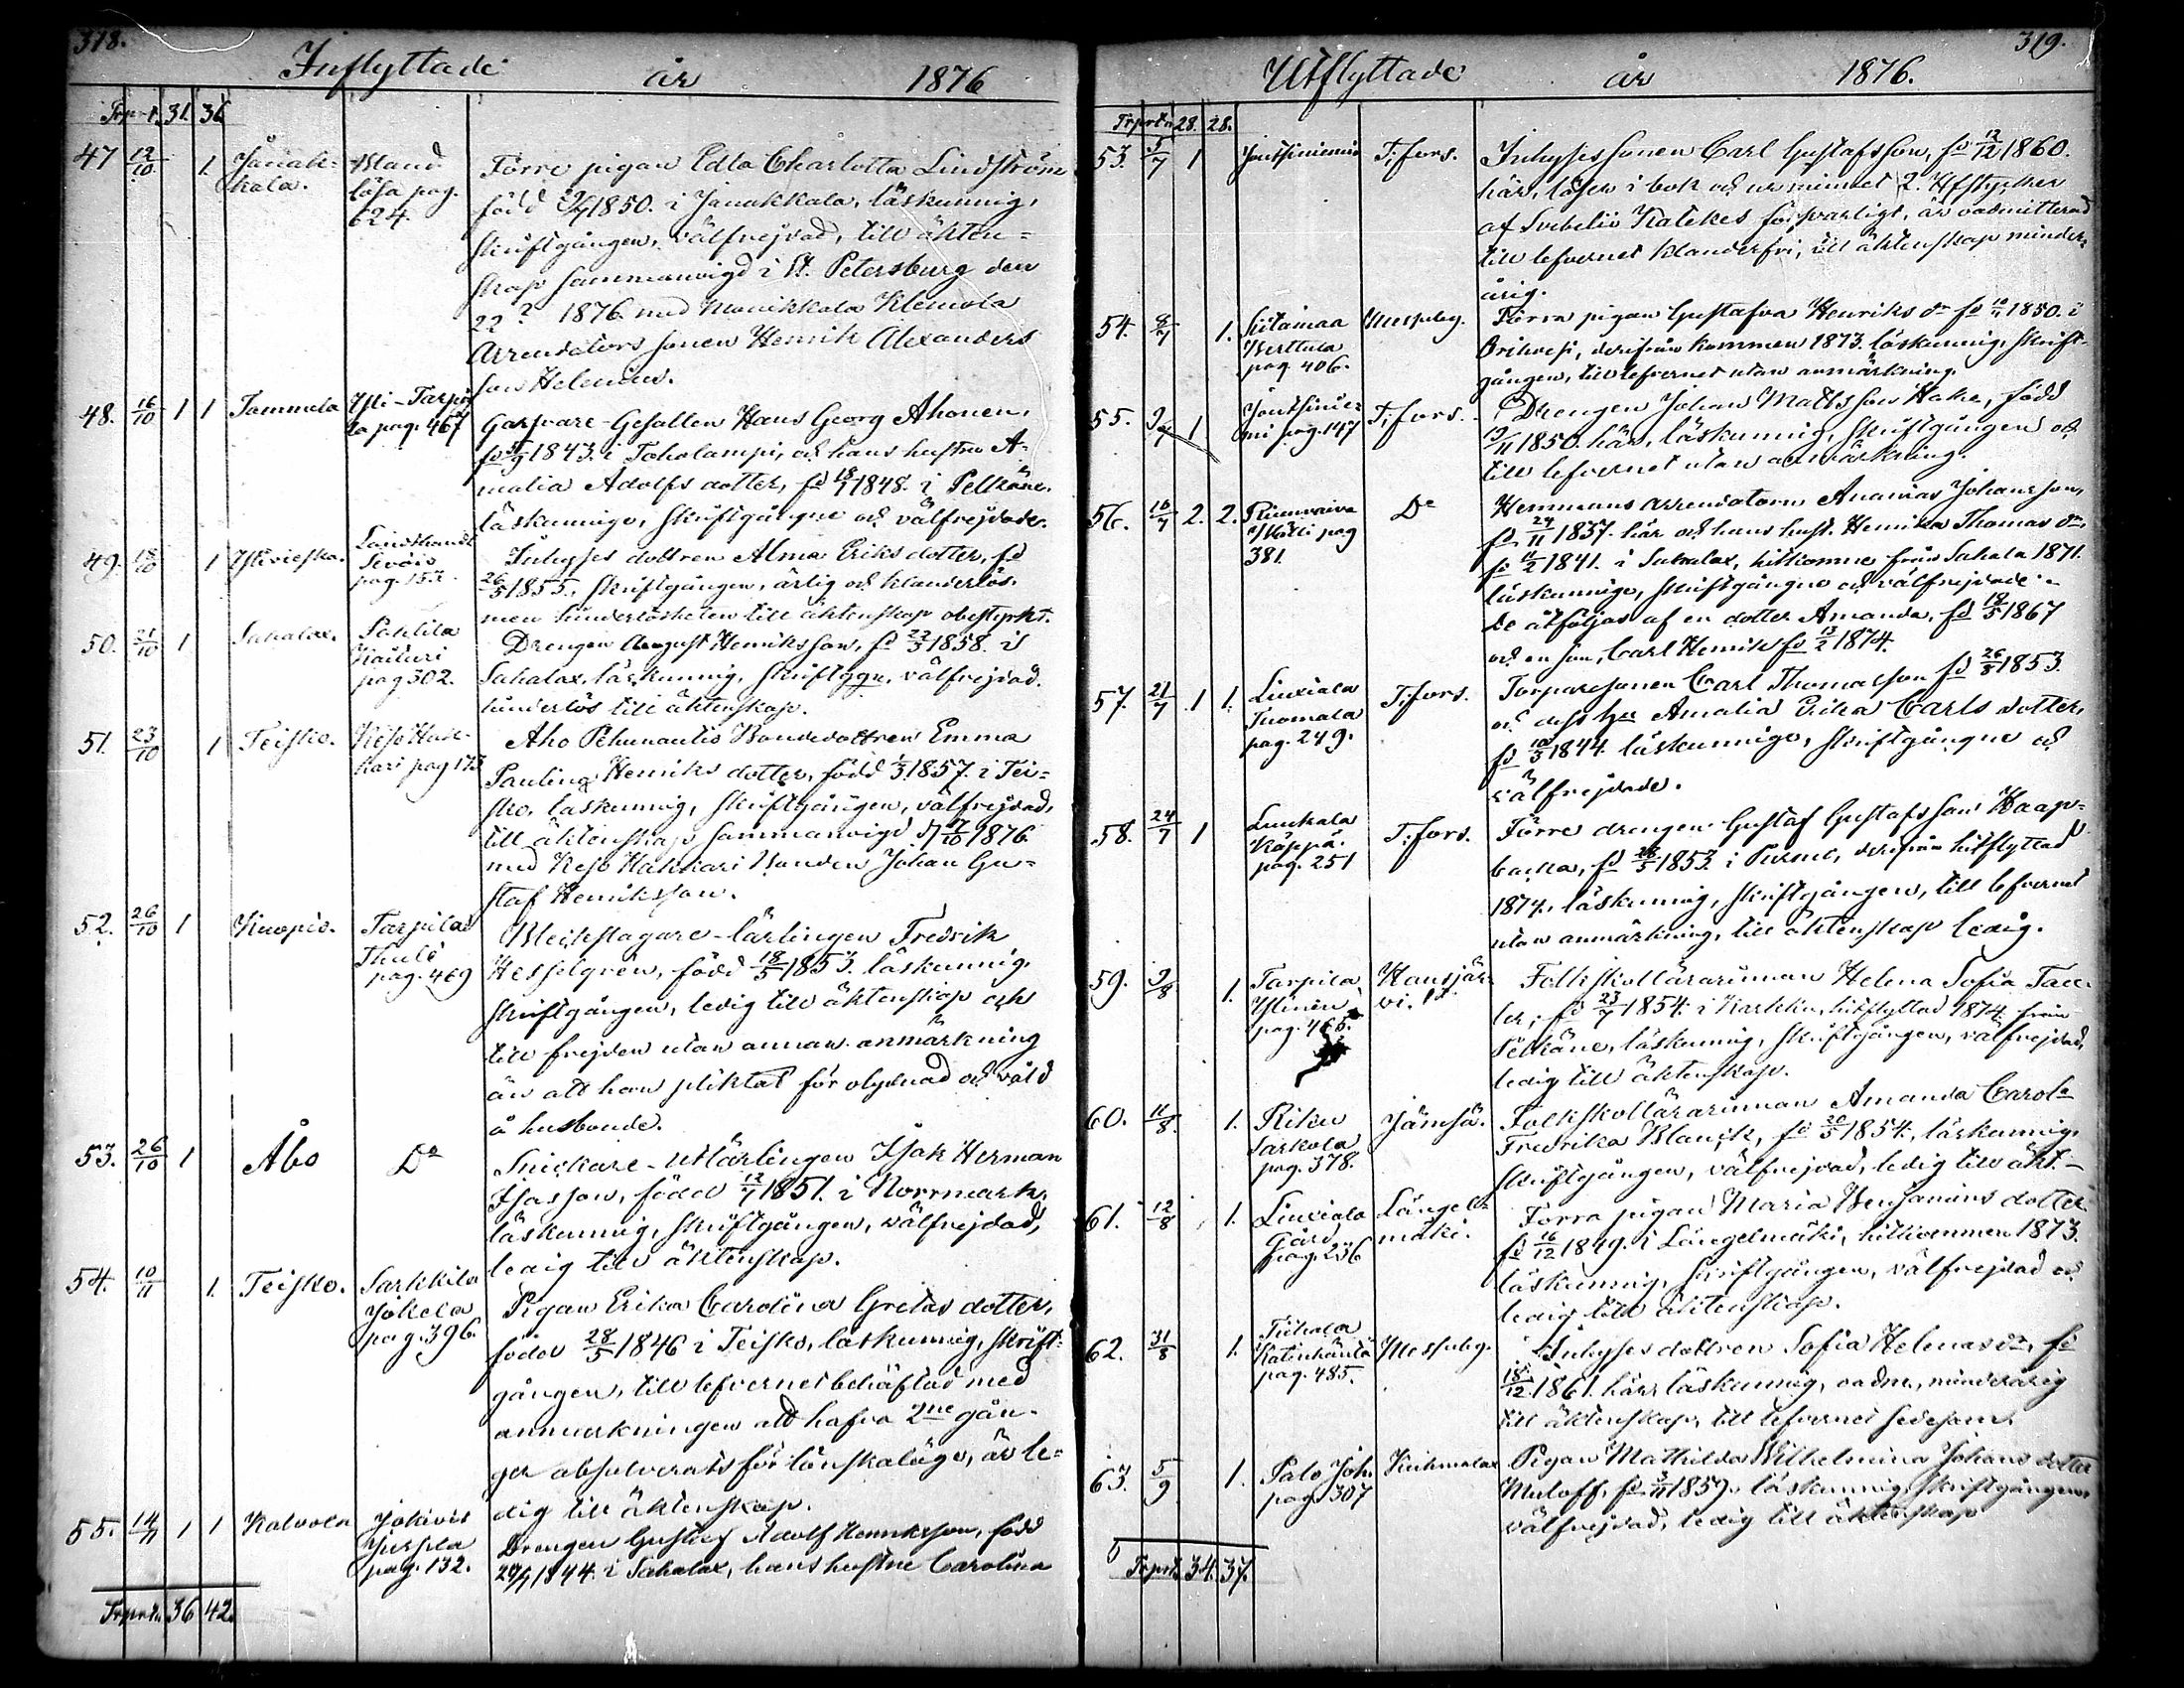 318.
Inflyttade år 1876
Trprt. 31. 36
47 12/10 1 Janak- Förre pigan Edla Charlotta Lindström
kala. lösa pag. född 1850. i Janakkala, läskunnig,
624. skriftgången, välfrejdad, till äkten-
skap sammanvigd i St. Petersburg den
22 ? 1876 med Klemola
Arrendators sonen Henrik Alexanders
son Helenius.
48. 16/10 1 1 Tammela Yli-Tarpi- Garfvare-Gesällen Hans Georg Ahonen,
la pag. 467 1843. i Toholampi, och hans hustru A-
malia Adolfs dotter, fd 18/1 1848. i Pelkäne.
läskunnige, skriftgångne och välfrejdade.
49. 18/10 1 Ylivieska. Inhyses dottren Alma Eriks dotter, fd
pag. 153. 26/5 1855, skriftgången, ärlig och klanderlös.
men hinderlösheten till äktenskap obestyrkt.
50. 21/10 1 Sahalax. Pohtila Drengen August Henriksson, fd 22/3 1858. i
Kaituri Sahalax, läskunnig, skriftggn, välfrejdad.
pag 302. hinderlös till äktenskap.
51. 23/10 1 Teisko. Keso Hak- Aho Pekunautio Bondedottren Emma
kari pag 173 Paulina Henriks dotter, född 1/3 1857. i Tei-
sko, läskunnig, skriftgången, välfrejdad,
till äktenskap sammanvigd d 7/10 1876
med Keso Hakkari Bonden Johan Gu-
staf Henriksson.
52. 26/10 1 Kuopio. Tarpila Bleckslagare-lärlingen Fredrik
Thulé Hesselgrén, född 18/5 1853. läskunnig,
pag. 469 skriftgången, ledig till äktenskap och
till frejden utan annan anmärkning
än att han pliktat för olydnad och våld
å husbonde.
53. 26/10 1 Åbo Do Snickare-Utlärlingen Isak Herman
Isasson, född 12/7 1851. i Norrmark,
läskunnig, skriftgången, välfrejdad,
ledig till äktenskap.
54. 10/11 1. Teisko. Sarkkila Pigan Erika Carolina Gretas dotter,
Jokela född 28/5 1846 i Teisko, läskunnig, skrift-
pag. 396. gången, till lefvernet behäftad med
anmärkningen att hafva 2ne gån-
ger absolverats för lönskaläge, är le-
dig till äktenskap.
55. 14/11 1 1 Kalvola Jokivis Drengen Gustaf Adolf Henriksson, född
pag. 132. 1844. i Sahalax, hans hustru Carolina
Trprt. 36 42.
319.
Utflyttade år 1876.
Trprt. 28. 28.
53. 5/7 1 Jontsiniemi T:fors. Inhysessonen Carl Gustafsson, fd 12/12 1860.
här, läser i bok och ur minnet 2. Htstycken
af Svebelii Katekes försvarligt, är oadmitterad
till lefvernet klanderfri, till äktenskap minder-
årig.
54. 8/7 1. Liitamaa Messuby. Förra pigan Gustafva Henriks dr fd 10/11 1850. i
Perttula Orihvesi, derifrån kommen 1873. läskunnig, skrift-
pag 406. gången, till lefvernet utan anmärkning.
55. 9/7 1 Jontsinie- T:fors. Drengen Johan Mattsson Hake, född
mi pag. 147 19/11 1850. här, läskunnig, skriftgången och
till lefvernet utan anmärkning.
56. 10/7 2. 2. Do Hemmans arrendatorn Ananias Johansson,
pag fd 24/11 1837. här och hans hust. Henrika Thomas dr,
381. fd 11/2 1841. i Sahalax, hitkomne från Sahala 1871.
läskunnige, skriftgångne och välfrejdade.
De åtföljas af en dotter Amanda, fd 18/5 1867
och en son, Carl Henrik fd 13/2 1874.
57. 21/7 1 1. Liuxiala T:fors. Torparesonen Carl Thomasson fd 26/8 1853.
Tuomala och dess hu Amalia Erika Carls dotter,
pag. 249. fd 10/3 1844. läskunnige, skriftgångne och
välfrejdade.
58. 24/7 1 Liuxiala T:fors. Förre drengen Gustaf Gustafsson Haap-
Käppä. backa, fd 28/5 1853. i Purmo, derifrån hitflyttad
pag. 251 1874. läskunnig, skriftgången, till lefvernet
utan anmärkning, till äktenskap ledig.
59. 9/8 1. Tarpila Hausjär- Folkskollärarinnan Helena Sofia
Ylinen vi. fd 23/7 1854. i Karkku, hitflyttad 1874. från
pag. 465. Pelkäne, läskunnig, skriftgången, välfrejdad,
ledig till äktenskap.
60. 11/8. 1. Riku Jämsä. Folkskollärarinnan Amanda Carola
Sarkola Fredrika Blanck, fd 20/5 1854., läskunnig,
pag. 378. skriftgången, välfrejdad, ledig till äkt.-
61. 12/8 1. Liuxiala Längel- Förra pigan Maria Benjamins dotter
Gård mäki. fd 16/12 1849. i Längelmäki, hitkommen 1873.
pag. 236 läskunnig, skriftgången, välfrejdad och
ledig till äktenskap.
62. 31/8 1. Tiihala Messuby. Inhyses dottren Sofia Helenas dr, fd
pag. 485. 18/12 1861. här, läskunnig, oadm., minderårig
till äktenskap, till lefvernet sedesam.
63. 5/9 1. Palo Joh. Kuhmalax Pigan Mathilda Wilhelmina Johans dotter
pag. 307 Muloff. fd 3/11 1857. läskunnig, skriftgången,
välfrejdad, ledig till äktenskap
Trprt. 34. 37.